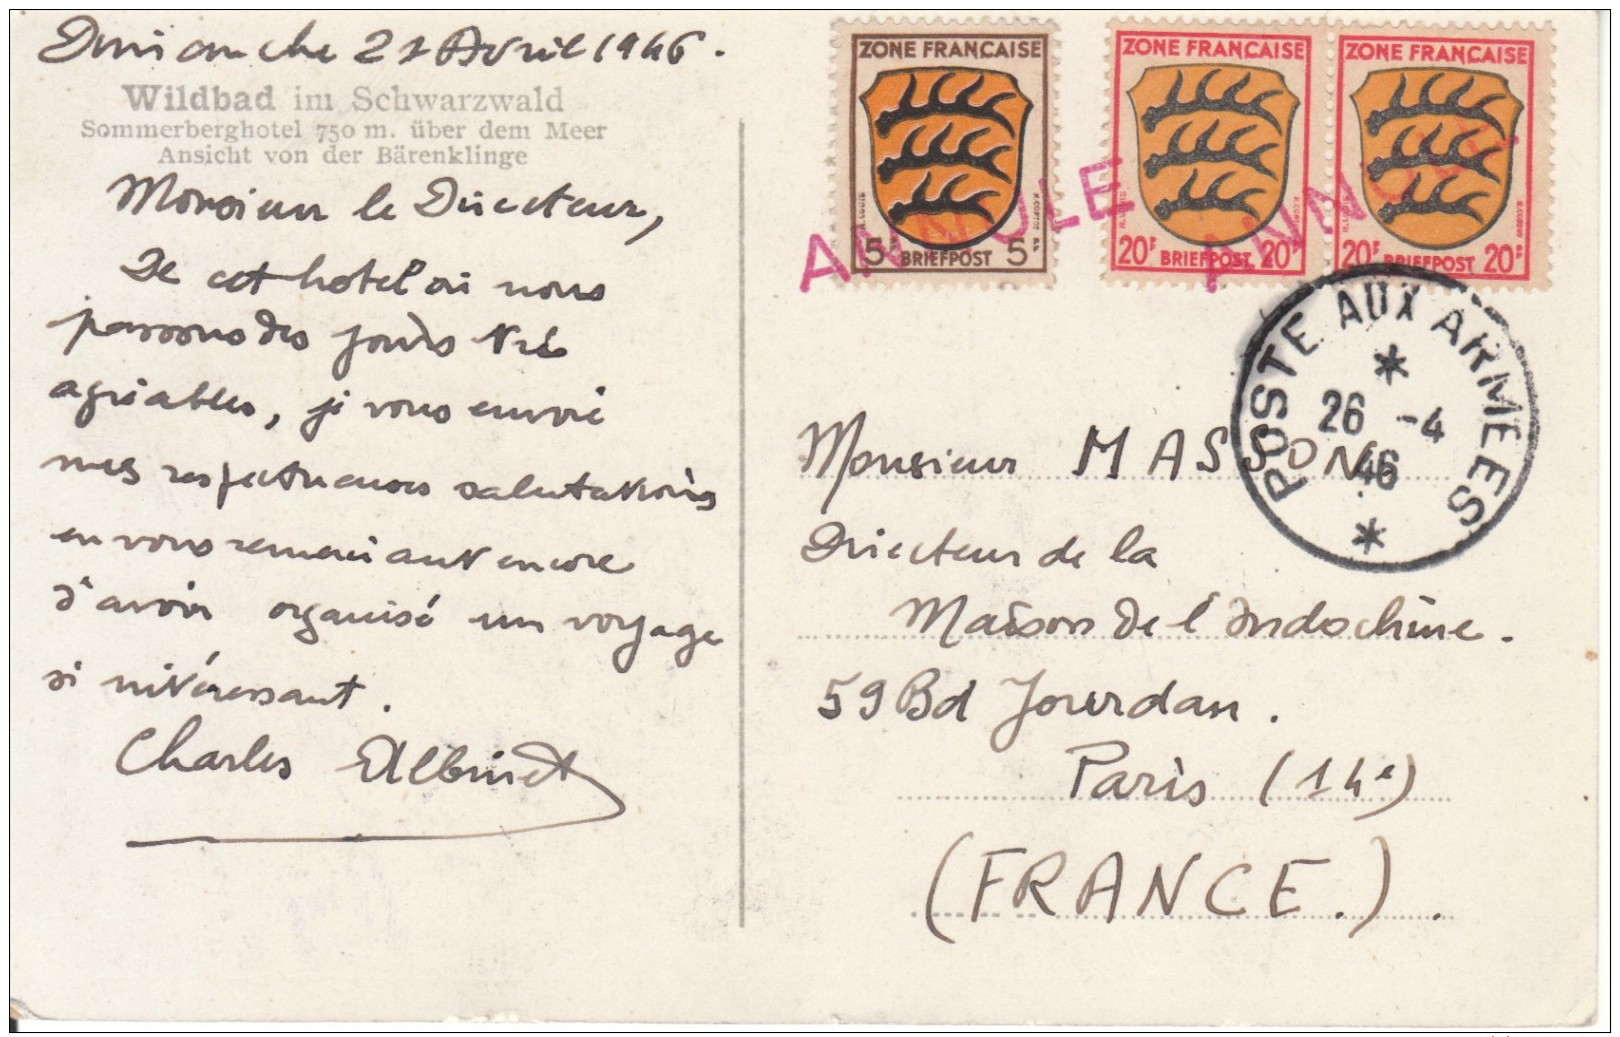 Dimanche 21 Avril 1946.
Wildbad im Schwarzwald
Sommerberghotel 750 m. über dem Meer
Ansicht von der Bärenklinge
Monsieur le Directeur,
De cet hotel où nous
passons des jours très
agréables, je vous envoie
mes respectueuses salutations
en vous remerciant encore
d'avoir organisé un voyage
si intéressant.
Charles Albinet
ZONE FRANÇAISE
5F BRIEFPOST 5F
ZONE FRANÇAISE
20F BRIEFPOST 20F
ZONE FRANÇAISE
20F BRIEFPOST 20F
ANNULE
ANNULE
POSTE AUX ARMEES
26 -4
46
Monsieur MASSON
Directeur de la
Maison de l'Indochine.
59 Bd Jourdan.
Paris (14e)
(FRANCE.).